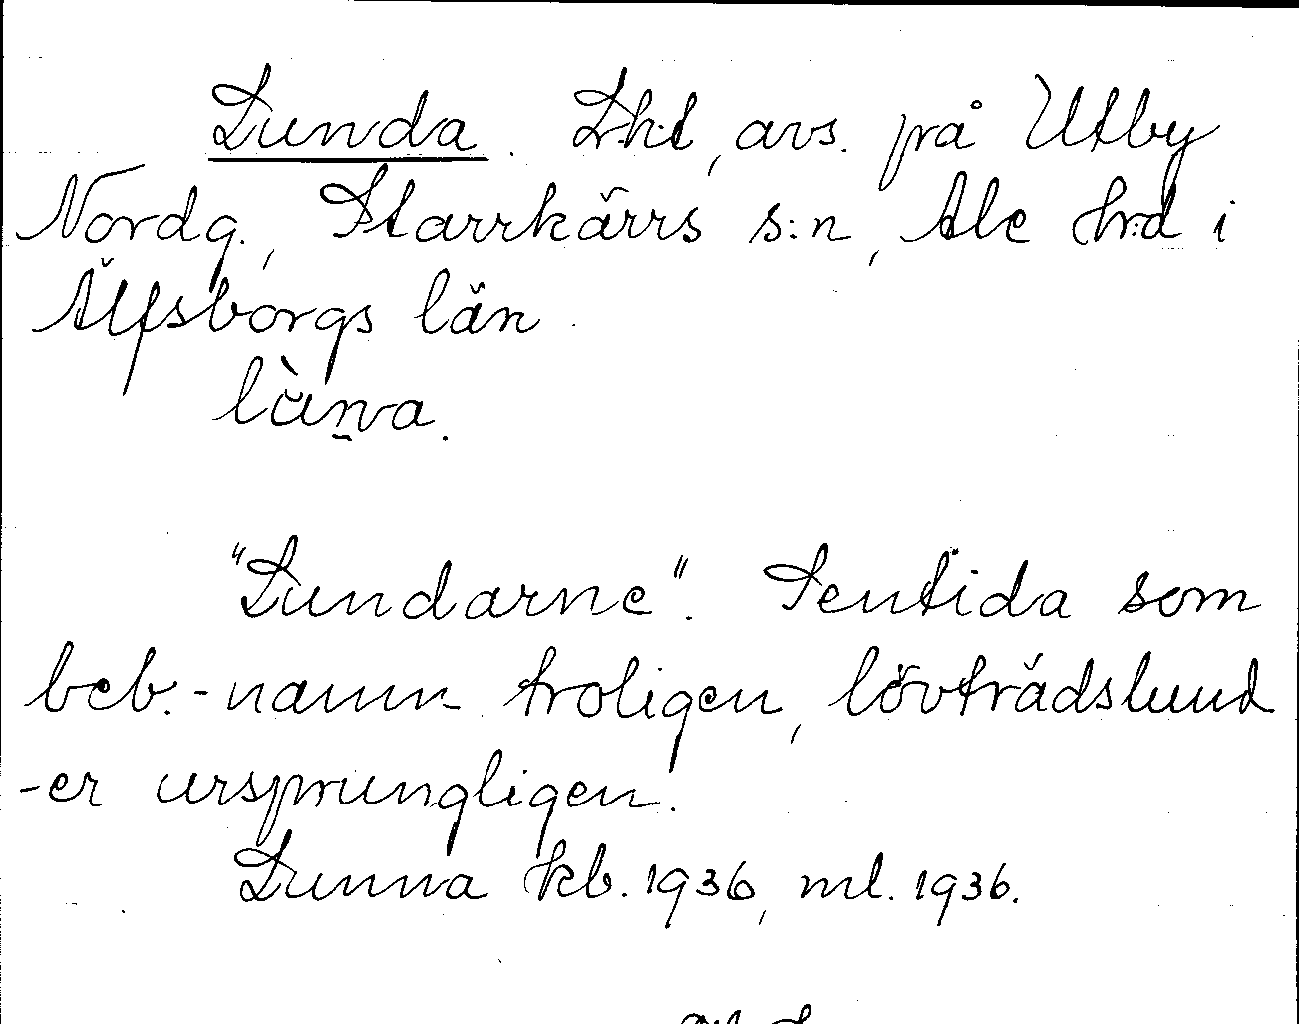 Lunda. Lht, avs. på Utby
Nordg., Starrkärrs s:n, Ale hrd i
Älfsborgs län.
lùn̰a.

"Lundarne". Sentida som
beb.-namn troligen, lövträdslund
-er ursprungligen.
Lunna kb. 1936, ml. 1936.